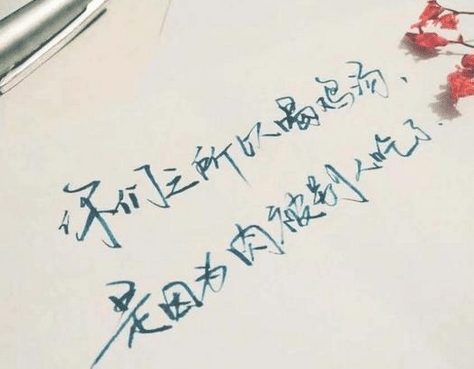 你们之所以喝鸡汤、
是因为肉被别人吃了.